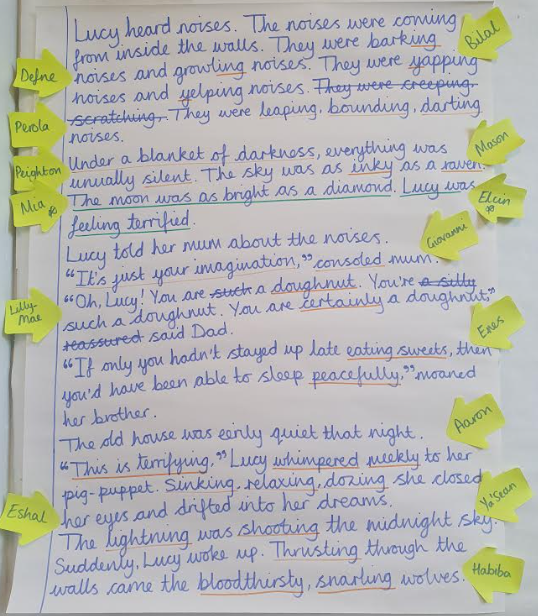 Lucy heard noises. The noises were coming
from inside the walls. They were barking
noises and growling noises. They were yapping
noises and yelping noises. They were creeping,
scratching. They were leaping, bounding, darting
noises.
Under a blanket of darkness, everything was
unually silent. The sky was as inky as a raven.
The moon was as bright as a diamond. Lucy was
feeling terrified.
Lucy told her mum about the noises.
“It's just your imagination,” consoled mum.
“Oh, Lucy! You are such a doughnut. You're a silly
such a doughnut. You are certainly a doughnut,”
reassured said Dad.
“If only you hadn't stayed up late eating sweets, then
you'd have been able to sleep peacefully,” moaned
her brother.
The old house was eerily quiet that night.
“This is terrifying,” Lucy whimpered meekly to her
pig-puppet. Sinking, relaxing, dozing she closed
her eyes and drifted into her dreams.
The lightning was shooting the midnight sky.
Suddenly, Lucy woke up. Thrusting through the
walls came the bloodthirsty, snarling wolves.
Bilal
Defne
Perola
Mason
Peighton
Mia
Elcin
Giovanni
Lilly-
Mae
Enes
Aaron
Eshal
Habiba